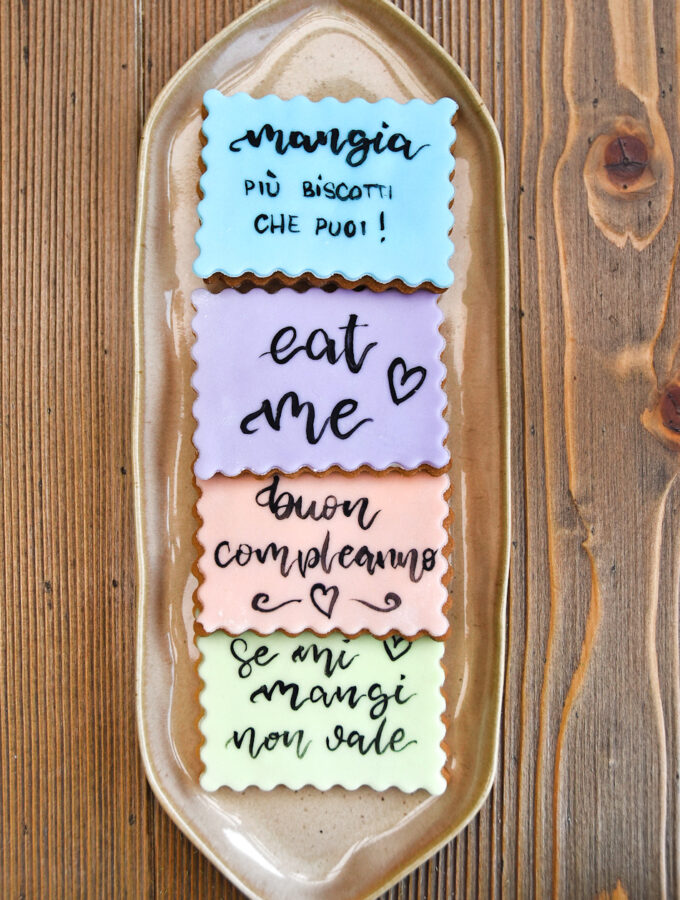 mangia
PIÙ BISCOTTI
CHE PUOI!
eat
me
buon
compleanno
Se mi
mangi
non vale